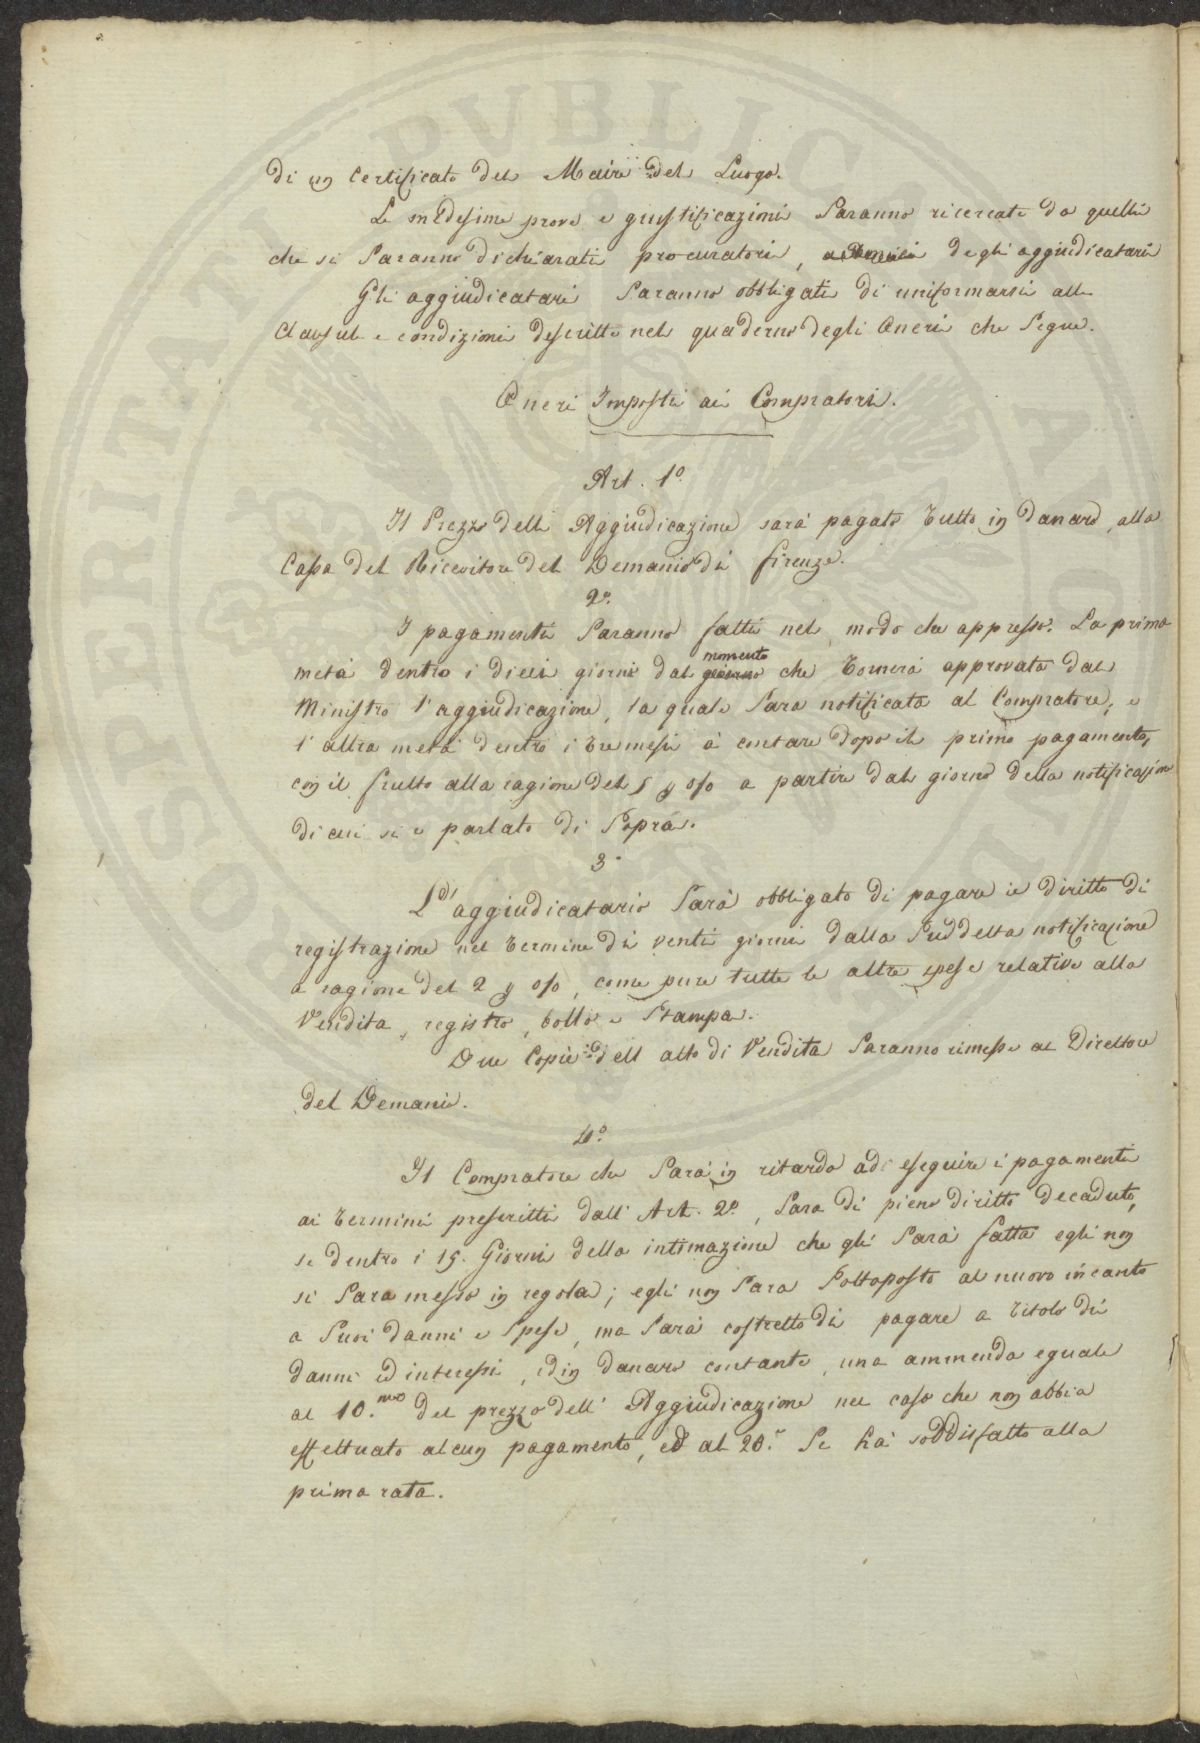 di un Certificato del Maire del Luogo.
Le medesime prove e giustificazioni Saranno ricercate da quelli
che si Saranno dichiarati procuratori, degli aggiudicatari
Gli aggiudicatari Saranno obbligati di uniformarsi alle
Clausule e condizioni descritte nel quaderno degli Oneri che Segue.
Oneri Imposti ai Compratori.
Art. 1º
Il Prezzo delle Aggiudicazione sarà pagato tutto in danaro, alla
Cassa del Ricevitore del Demanio di firenze.
2º.
I pagamenti Saranno fatti nel modo che appresso. La prima
metà dentro i dieci giorni dal giorno momento che tornerà approvata dal
Ministro l'aggiudicazione, la quale Sara notificata al Compratore, e
l'altra metà dentro i tre mesi à contare dopo il primo pagamento,
con il frutto alla ragione del 5 p o/o a partire dal giorno della notificazione
di cui si è parlato di Sopra.
3º
L'aggiudicatario Sarà obbligato di pagare il diritto di
registrazione nel termine di venti giorni dalla Suddetta notificazione
a ragione del 2 p o/o, come pure tutte le altre spese relative alla
Vendita, registro, bollo e Stampa.
Due Copie dell atto di Vendita Saranno rimesse al Direttore
del Demanio.
4º.
Il Compratore che Sarà in ritardo ad eseguire i pagamenti
ai termini prescritti dall' Art. 2º, Sara di pieno diritto decaduto,
se dentro i 15. Giorni della intimazione che gli Sarà fatta egli non
si Sara messo in regola; egli non Sara Sottoposto al nuovo incanto
a Suoi danni e Spese, ma Sarà costretto di pagare a titolo di
danni ed interessi, ed in danaro contante, una ammenda eguale
al 10.mo del prezzo dell' Aggiudicazione nel caso che non abbia
effettuato alcun pagamento, ed al 20.º Se ha soddisfatto alla
prima rata.